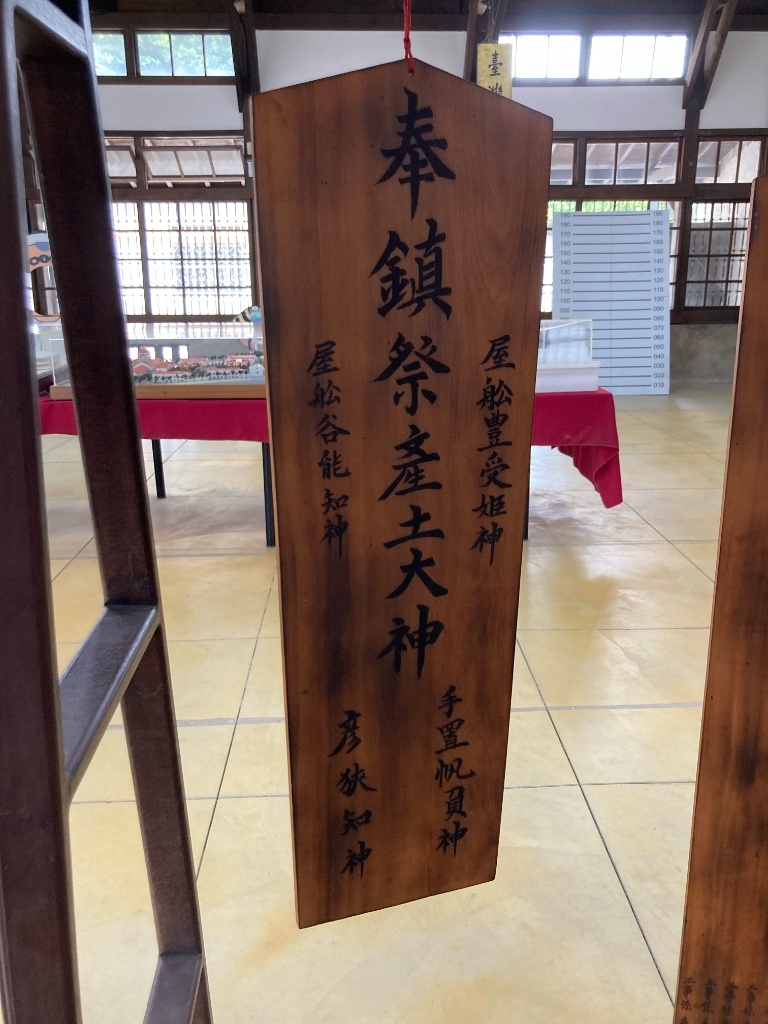 奉鎮祭產土大神
屋舩豊受姫神
屋舩谷能知神
手置帆負神
彦狹知神
臺灣
190
180
170
160
150
140
130
120
110
100
090
080
070
060
050
040
030
020
010